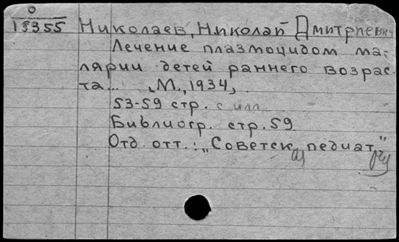 О
15355
Николаев, Николай Дмитриевич
Лечение плазмоцидом ма-
лярии детей раннего возрас-
та... М., 1934,
53-59 стр. с илл.
Библиогр. стр. 59
Отд. отт.: „Советск. педиат."